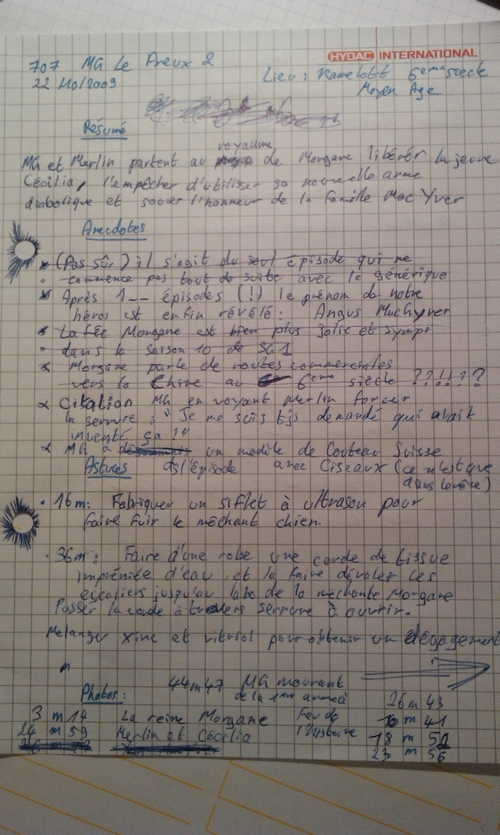 HYDAC INTERNATIONAL
707 MG Le Preux 2
22/10/2009
Lieu : Kamelott 6eme siecle
Moyen Age
Résumé
royaume
MG et Merlin partent au de Morgane libérér la jeune
Cécilia, l'empécher d'utiliser sa nouvelle arme
diabolique et sauver l'honneur de la famille Mac Yver
Anecdotes
(Pas sûr) il s'agit du seul épisode qui ne
commence pas tout de suite avec le générique
Après 1-- épisodes (!) le prénom de notre
héros est enfin révélé : Angus MacGyver
La fée Morgane est bien plus jolie et symp
dans la saison 10 de SG1
Morgane parle de routes commerciales
vers la Chine au 6eme siècle ??!!??
Citation MG en voyant Merlin forcer
la serrure : "Je me suis tjs demandé qui avait
inventé ça !"
MG a un modèle de Couteau Suisse
Astuces ds l'épisode avec Ciseaux (ce n'est que
16m : Fabriquer un siflet à ultrason pour
faire fuir le méchant chien.
36m : Faire d'une robe une corde de tissue
impréniée d'eau et la faire déroler les
escaliers jusqu'au labo de la méchante Morgane
Passer la corde à travers serrure à ouvrir.
Melanger zinc et vitriol pour obtenir un dégagement
44m47 MG mourant
Photos : de la 1ere
26m43
3m14 La reine Morgane
24m59 Merlin et Cécilia
l'histoire
16m41
18m52
23m56